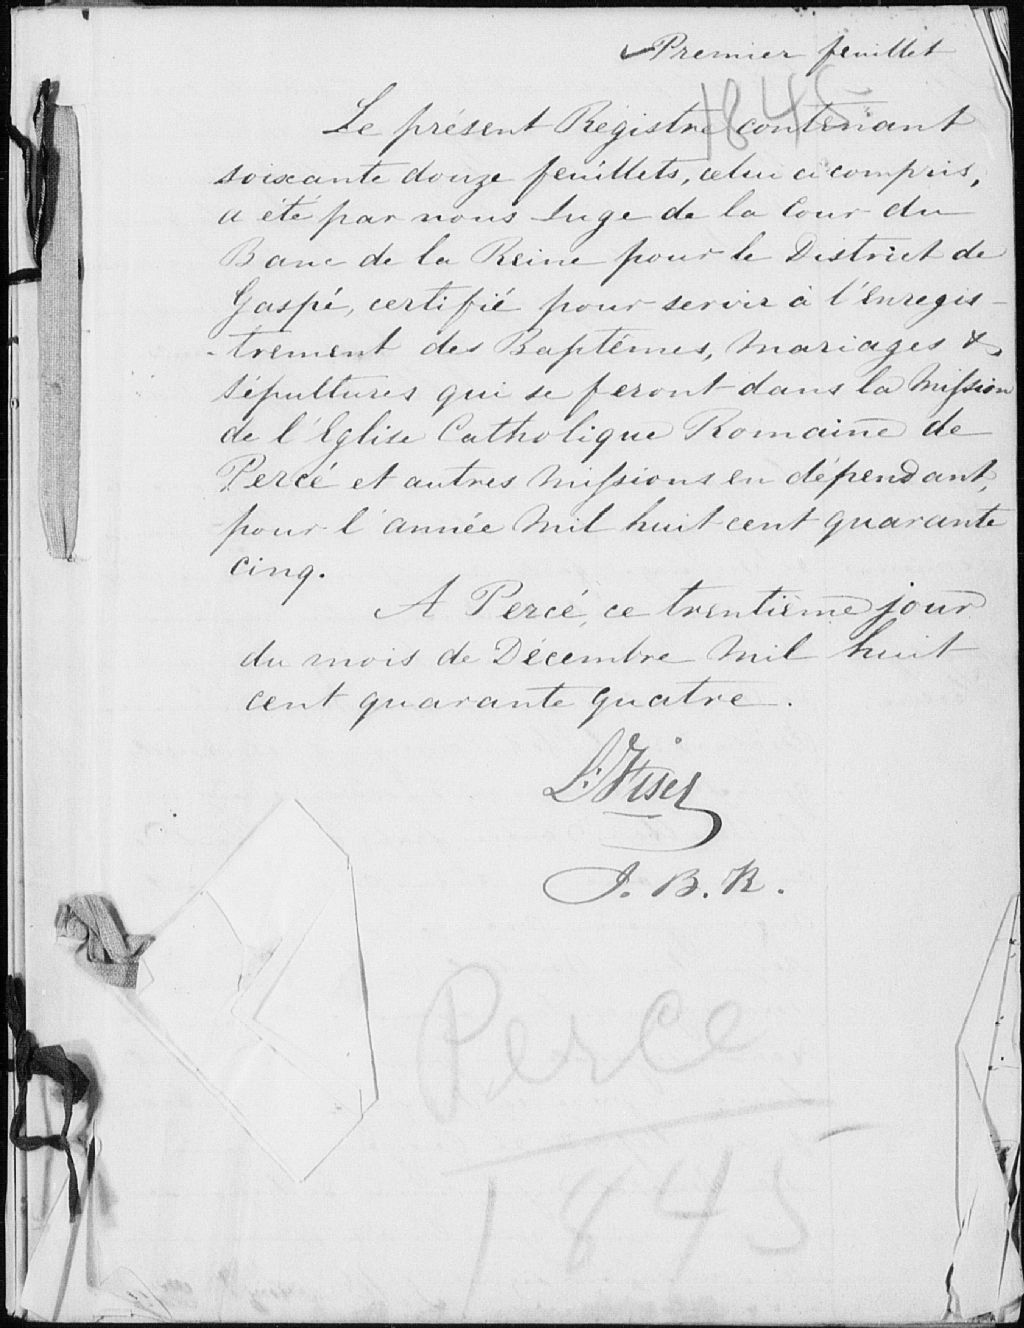 Premier feuillet
1845
Le présent Registre contenant
soixante douze feuillets, celui ci compris,
a été par nous Juge de la Cour du
Banc de la Reine pour le District de
Gaspé, certifié pour servir à l'enregis-
-trement des Baptêmes, Mariages &
Sépultures qui se feront dans la Mission
de l'Eglise Catholique Romaine de
Percé et autres Missions en dépendant,
pour l'année Mil huit cent quarante
cinq.
A Percé, ce trentième jour
du mois de Décembre Mil huit
cent quarante quatre.
J. B. R.
Perce
1845